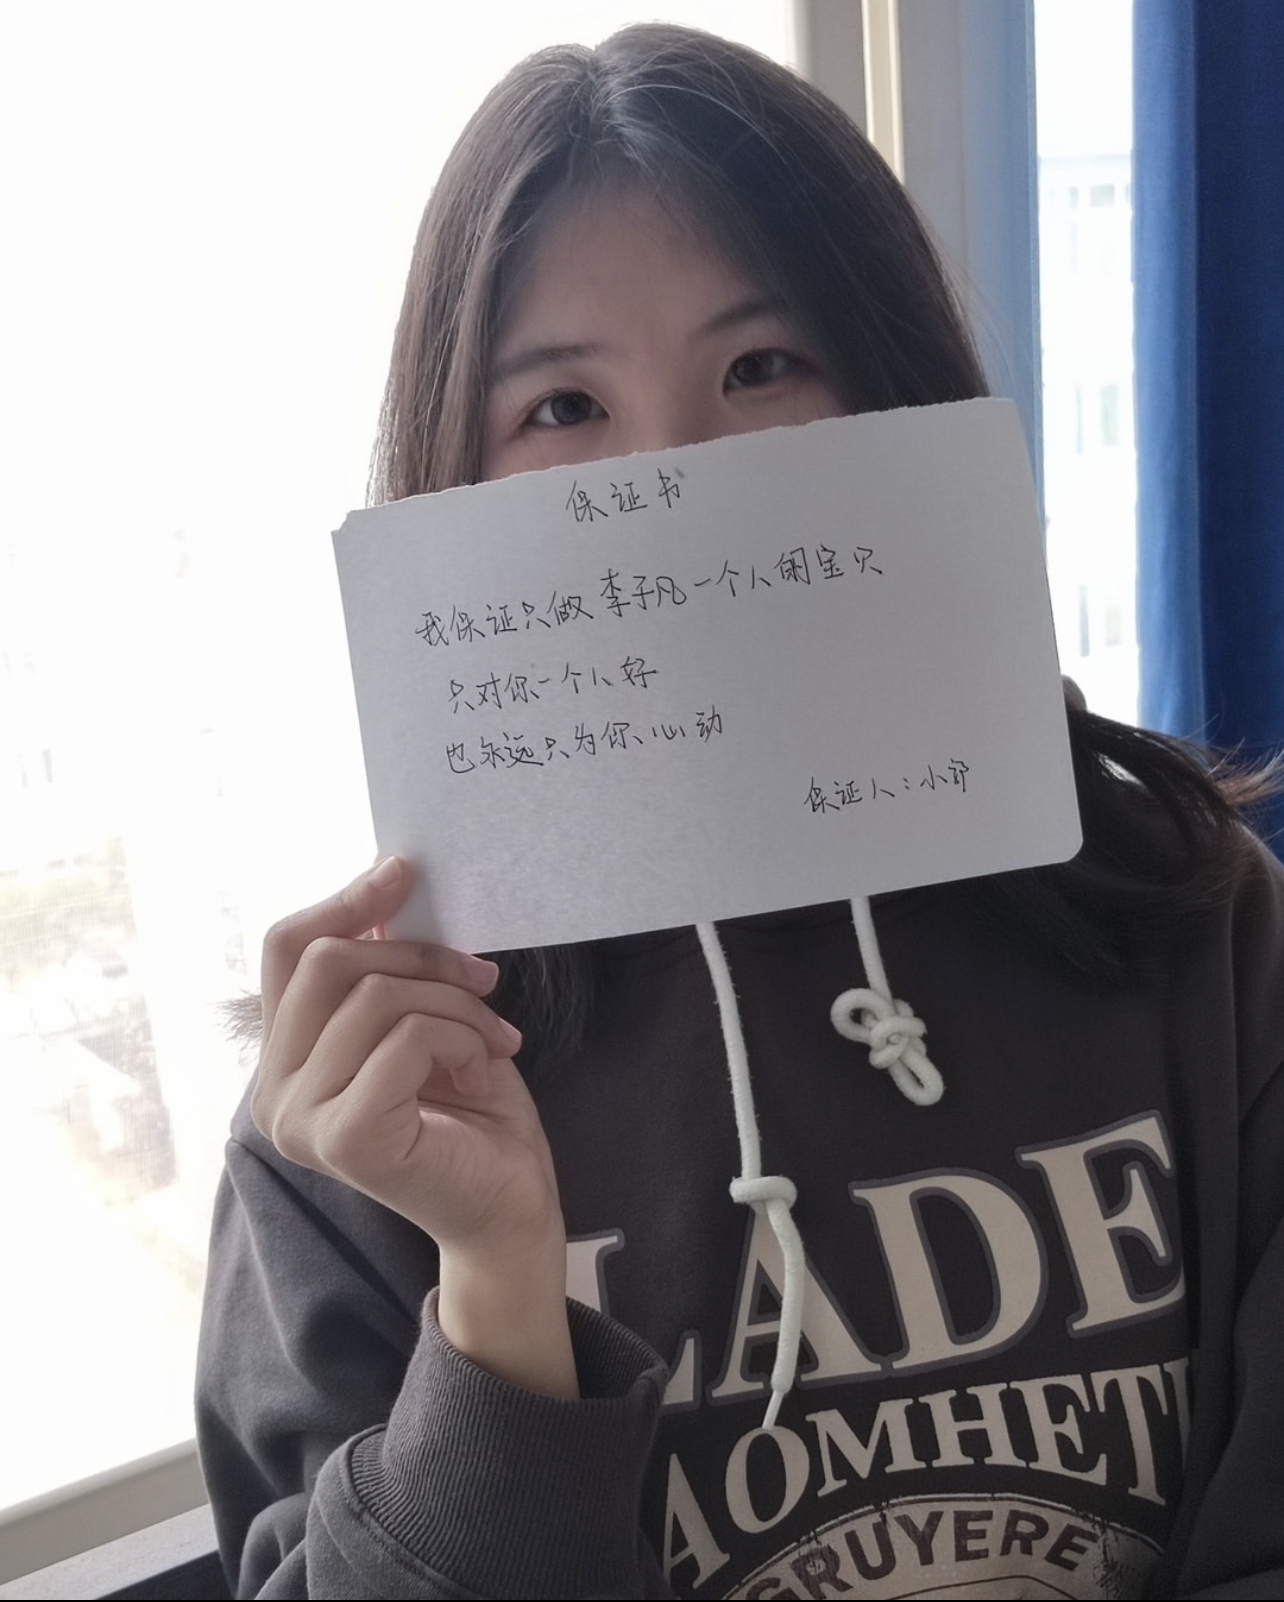 保证书
我保证只做李子凡一个人的宝贝
只对你一个人好
也永远只为你心动
保证人：小郭
LADE
AOMHETI
GRUYERE